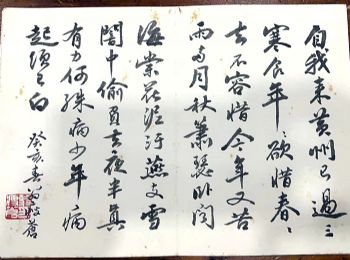 自我来黄州已過三
寒食年々欲惜春々
去不容惜今年又苦
雨兩月秋蕭瑟卧聞
海棠花泥汙燕支雪
闇中偷負去夜半真
有力何殊病少年病
起須已白
癸亥春